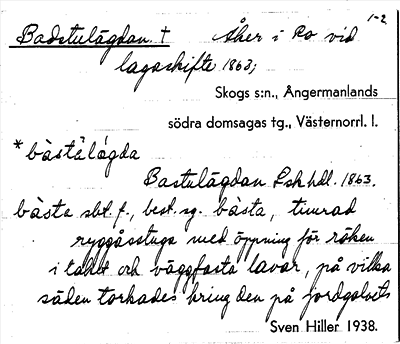 Badstulägdan † Åker i Ro vid 1-2
lagaskifte 1863;
Skogs s:n., Ångermanlands
södra domsagas tg., Västernorrl. l.
*bàstålǻgda
Bastulägdan Lskhdl. 1863.
bàsta sbt. f., best. sg. bàsta, timrad
ryggåsstuga med öppning för röken
i taket och väggfasta lavar, på vilka
säden torkades kring den på jordgolvet
Sven Hiller 1938.